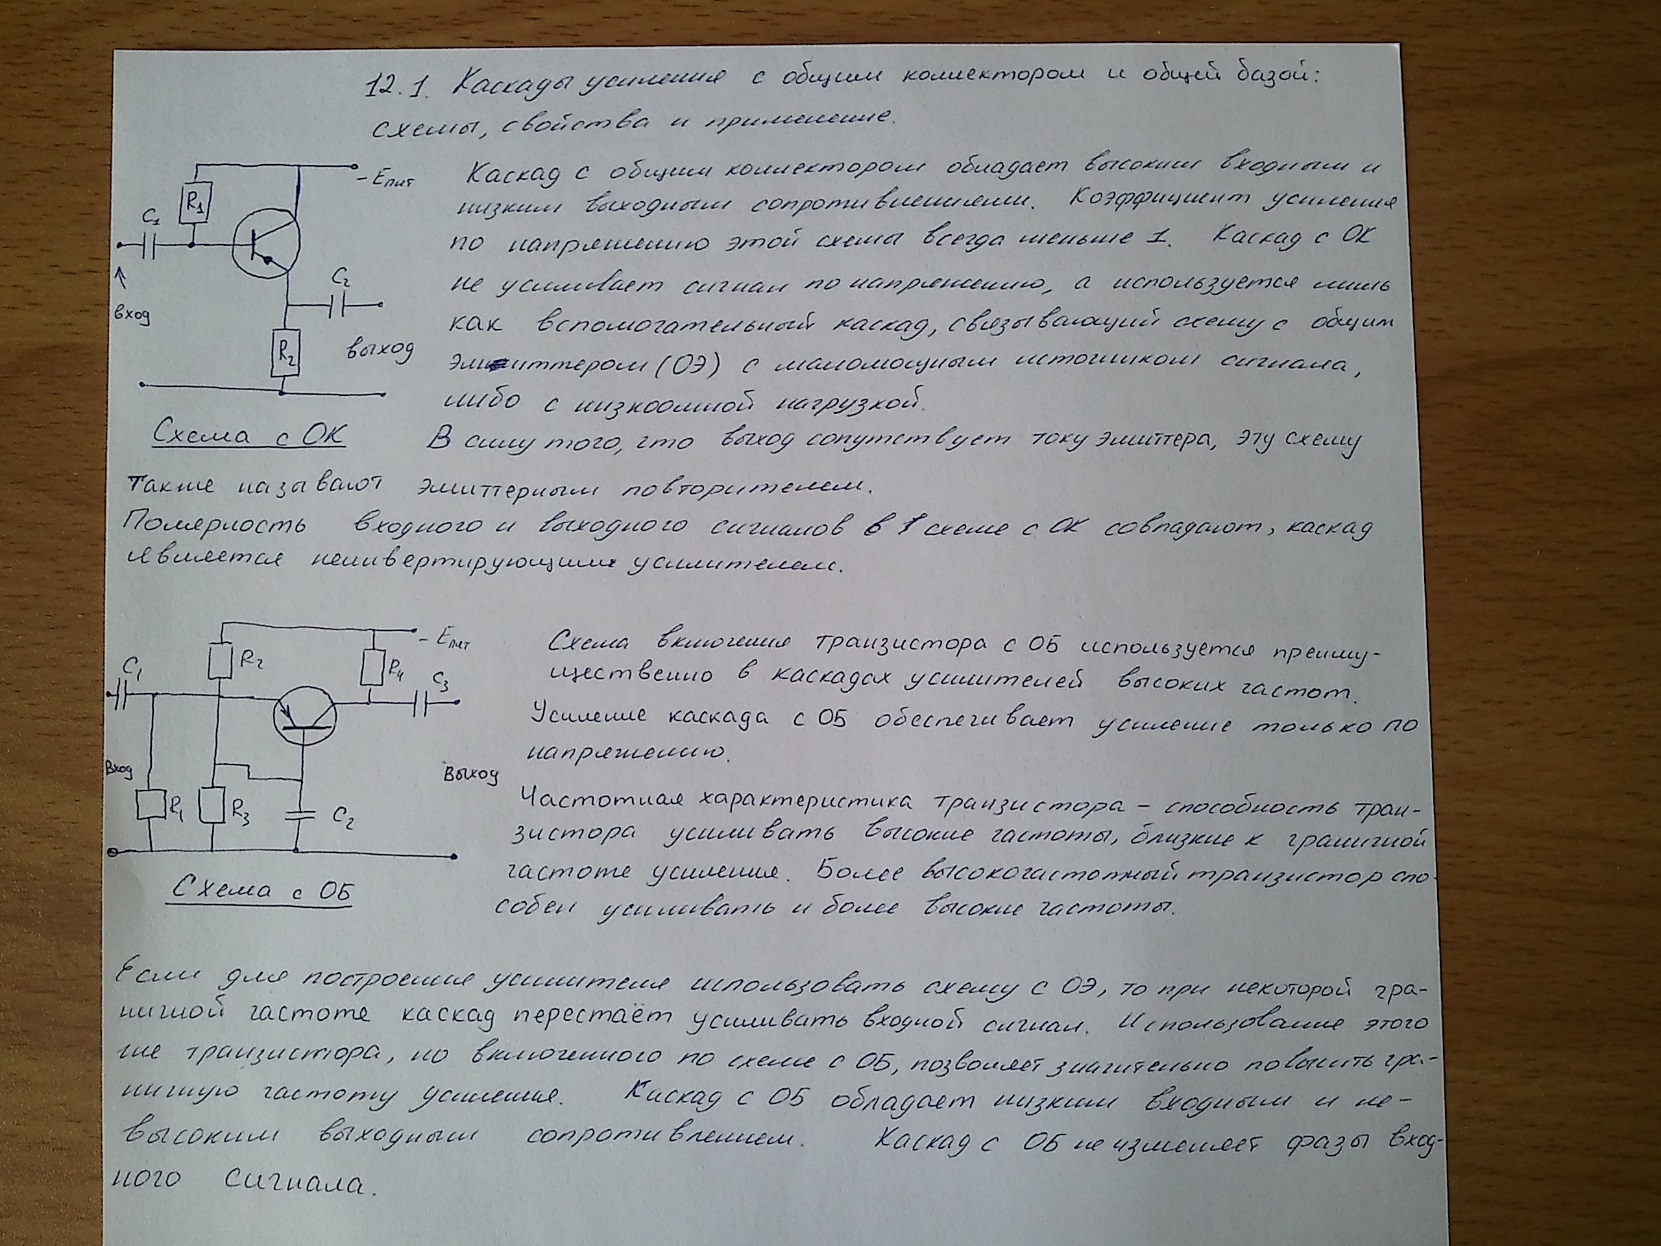 12.1. Каскады усиления с общим коллектором и общей базой:
схемы, свойства и применение.
- Eпит
R1
C1
вход
C2
R2
выход
Схема с ОК
Каскад с общим коллектором обладает высоким входным и
низким выходным сопротивлениями. Коэффициент усиления
по напряжению этой схемы всегда меньше 1. Каскад с ОК
не усиливает сигнал по напряжению, а используется лишь
как вспомогательный каскад, связывающий схему с общим
эмиттером (ОЭ) с маломощным источником сигнала,
либо с низкоомной нагрузкой.
В силу того, что выход сопутствует току эмиттера, эту схему
также называют эмиттерным повторителем.
Полярность входного и выходного сигналов в схеме с ОК совпадают, каскад
является неинвертирующим усилителем.
- Eпит
C1
R2
R4
C3
Вход
Выход
R1
R3
C2
Схема с ОБ
Схема включения транзистора с ОБ используется преиму-
щественно в каскадах усилителей высоких частот.
Усиление каскада с ОБ обеспечивает усиление только по
напряжению.
Частотная характеристика транзистора – способность тран-
зистора усиливать высокие частоты, близкие к граничной
частоте усиления. Более высокочастотный транзистор спо-
собен усиливать и более высокие частоты.
Если для построения усилителя использовать схему с ОЭ, то при некоторой гра-
ничной частоте каскад перестаёт усиливать входной сигнал. Использование этого
же транзистора, но включенного по схеме с ОБ, позволяет значительно повысить гра-
ничную частоту усиления. Каскад с ОБ обладает низким входным и не-
высоким выходным сопротивлением. Каскад с ОБ не изменяет фазы вход-
ного сигнала.